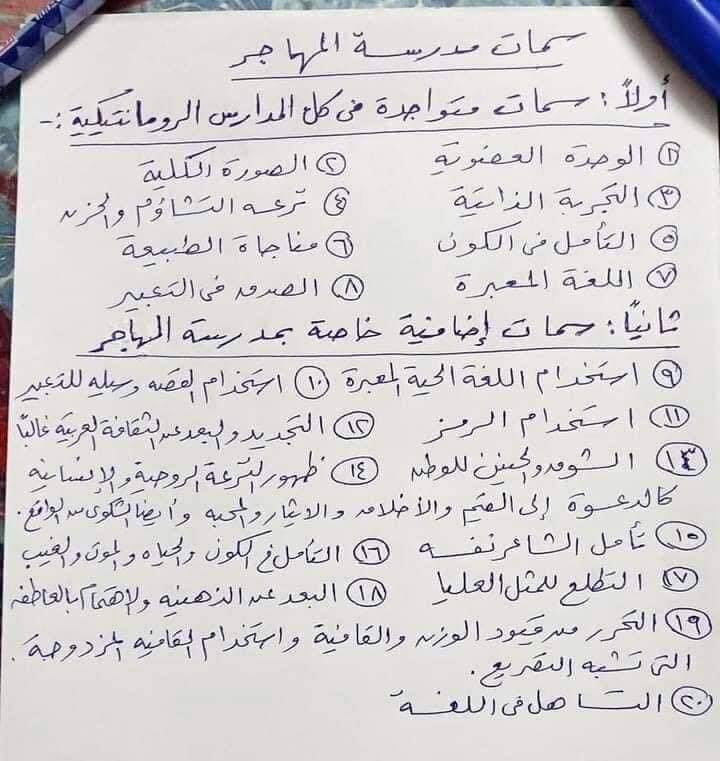 سمات مدرسة المهاجر
أولاً: سمات متواجدة فى كل المدارس الرومانتيكية :-
① الوحدة العضوية ② الصورة الكلية
③ التجربة الذاتية ④ نزعه التشاؤم والحزن
⑤ التأمل فى الكون ⑥ مناجاة الطبيعة
⑦ اللغة المعبرة ⑧ الصدق فى التعبير
ثانياً: سمات إضافية خاصة بمدرسة المهاجر
⑨ استخدام اللغة الحية المعبرة ⑩ استخدام القصه وسيله للتعبير
⑪ استخدام الرمز ⑫ التجديد والبعد عن الثقافة العربية غالبًا
⑬ الشوق والحنين للوطن ⑭ ظهور النزعة الروحية والإنسانية
كالدعوة إلى القيم والأخلاق والايثار والمحبه وأيضا الشكوى من الواقع.
⑮ تأمل الشاعر نفسه ⑯ التأمل فى الكون والحياه والموت والغيب
⑰ التطلع للمثل العليا ⑱ البعد عن الذهنيه والإهتمام بالعاطفه
⑲ التحرر من قيود الوزن والقافية واستخدام القافيه المزدوجة.
التى تشبه التصريع.
⑳ التساهل فى اللغة